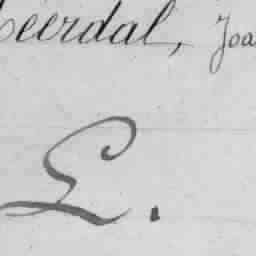 eerdal, Joa
L.